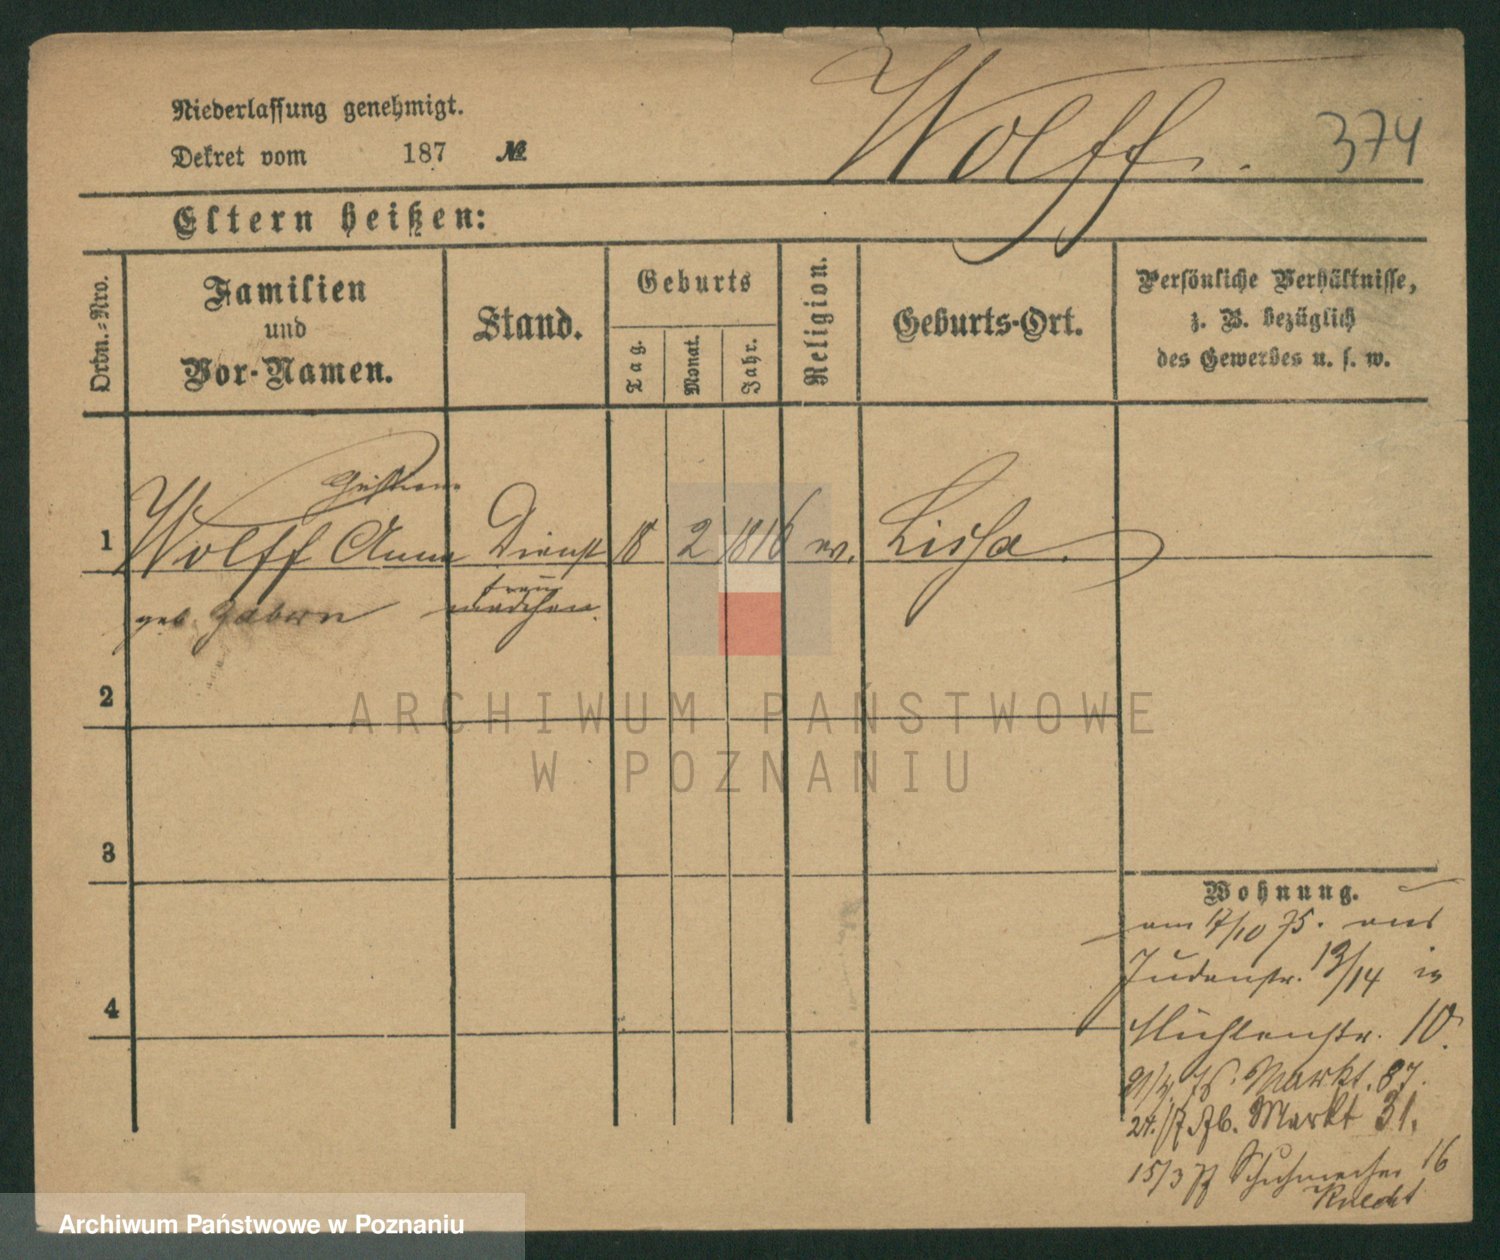 Niederlassung genehmigt.
Dekret vom 187 №
Wolff.
374
Eltern heißen:
Ordn.-Nro.
Familien
und
Vor-Namen.
Stand.
Geburts
Tag.
Monat.
Jahr.
Religion.
Geburts-Ort.
Persönliche Verhältnisse,
z. B. bezüglich
des Gewerbes u. s. w.
1 Wolff Anna Dienst 18 2 1816 ev. Lissa.
geb. mädchen
frau
2
3
4
Wohnung.
am 17/10 75. aus
Judenstr. 13/14 in
Mühlenstr. 10.
Markt. 87.
Markt 31.
15/3 77 Schuhmacher 16
Knecht
ARCHIWUM PAŃSTWOWE
W POZNANIU
Archiwum Państwowe w Poznaniu